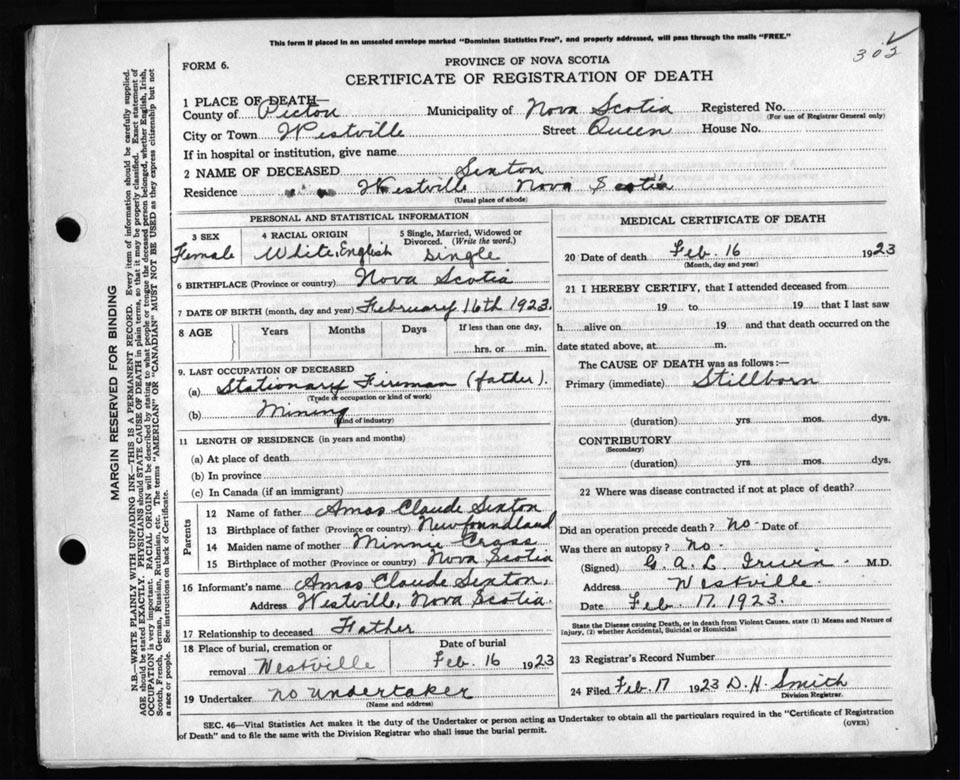 This form if placed in an unsealed envelope marked "Dominion Statistics Free", and properly addressed, will pass through the mails "FREE."
302
FORM 6.
PROVINCE OF NOVA SCOTIA
CERTIFICATE OF REGISTRATION OF DEATH
1 PLACE OF DEATH—
County of Pictou Municipality of Nova Scotia Registered No.
(For use of Registrar General only)
City or Town Westville Street Queen House No.
If in hospital or institution, give name
2 NAME OF DECEASED Sexton
Residence Westville Nova Scotia
(Usual place of abode)
PERSONAL AND STATISTICAL INFORMATION
3 SEX 4 RACIAL ORIGIN 5 Single, Married, Widowed or Divorced. (Write the word.)
Female White, English single
6 BIRTHPLACE (Province or country) Nova Scotia
7 DATE OF BIRTH (month, day and year) February 16th 1923.
8 AGE Years Months Days If less than one day,
hrs. or min.
9. LAST OCCUPATION OF DECEASED
(a) Stationary Fireman (father).
(Trade or occupation or kind of work)
(b) Mining
(Kind of industry)
11 LENGTH OF RESIDENCE (in years and months)
(a) At place of death
(b) In province
(c) In Canada (if an immigrant)
Parents
12 Name of father Amos Claude Sexton
13 Birthplace of father (Province or country) Newfoundland
14 Maiden name of mother Minnie
15 Birthplace of mother (Province or country) Nova Scotia
16 Informant's name Amos Claude Sexton,
Address Westville, Nova Scotia.
17 Relationship to deceased Father
18 Place of burial, cremation or removal Westville
Date of burial
Feb. 16 1923
19 Undertaker no undertaker
(Name and address)
MEDICAL CERTIFICATE OF DEATH
20 Date of death Feb. 16 1923
(Month, day and year)
21 I HEREBY CERTIFY, that I attended deceased from
19 to 19 that I last saw
h alive on 19 and that death occurred on the
date stated above, at m.
The CAUSE OF DEATH was as follows:—
Primary (immediate) Stillborn
(duration) yrs. mos. dys.
CONTRIBUTORY
(Secondary)
(duration) yrs. mos. dys.
22 Where was disease contracted if not at place of death?
Did an operation precede death? no. Date of
Was there an autopsy? no.
(Signed) G. A. L. M.D.
Address Westville.
Date Feb. 17. 1923.
State the Disease causing Death, or in death from Violent Causes, state (1) Means and Nature of Injury, (2) whether Accidental, Suicidal or Homicidal
23 Registrar's Record Number
24 Filed Feb. 17 1923 D. H. Smith
Division Registrar.
SEC. 46—Vital Statistics Act makes it the duty of the Undertaker or person acting as Undertaker to obtain all the particulars required in the "Certificate of Registration
of Death" and to file the same with the Division Registrar who shall issue the burial permit. (OVER)
MARGIN RESERVED FOR BINDING
N.B.—WRITE PLAINLY WITH UNFADING INK—THIS IS A PERMANENT RECORD. Every item of information should be carefully supplied.
AGE should be stated EXACTLY. PHYSICIANS should STATE CAUSE OF DEATH in plain terms, so that it may be properly classified. Exact statement of
OCCUPATION is very important. RACIAL ORIGIN will be described by stating to what people or tongue the deceased person belonged, whether English, Irish,
Scotch, French, German, Russian, Ruthenian, etc. The terms "AMERICAN" OR "CANADIAN" MUST NOT BE USED as they express citizenship but not
a race or people. See instructions on back of Certificate.